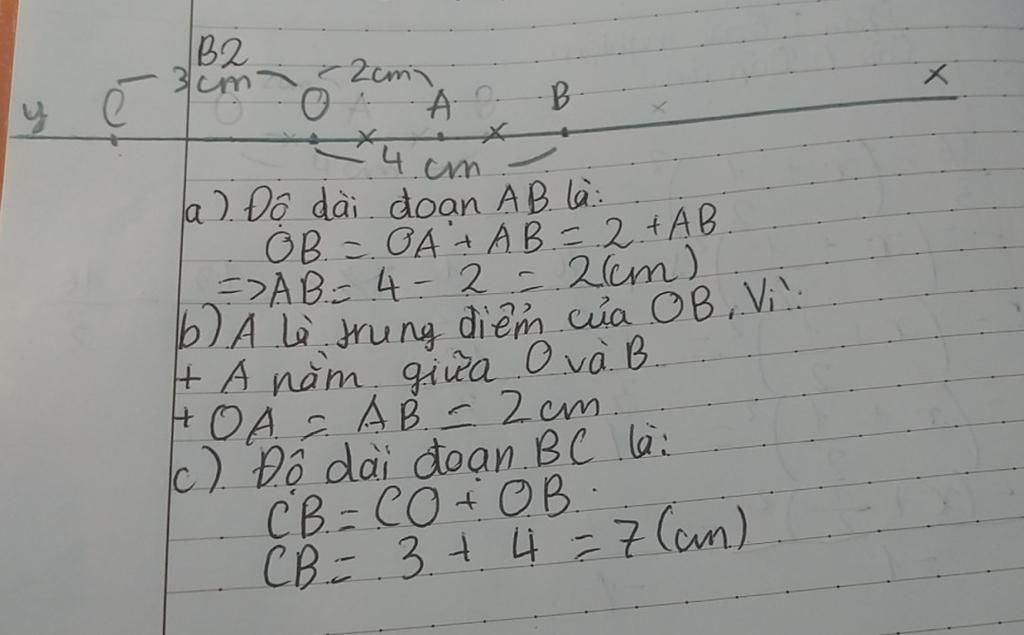 B2
3cm 2cm
y C O A B x
4 cm
a) Độ dài đoạn AB là:
OB = OA + AB = 2 + AB
=> AB = 4 - 2 = 2 (cm)
b) A là trung điểm của OB, Vì:
+ A nằm giữa O và B
+ OA = AB = 2 cm
c) Độ dài đoạn BC là:
CB = CO + OB.
CB = 3 + 4 = 7 (cm)